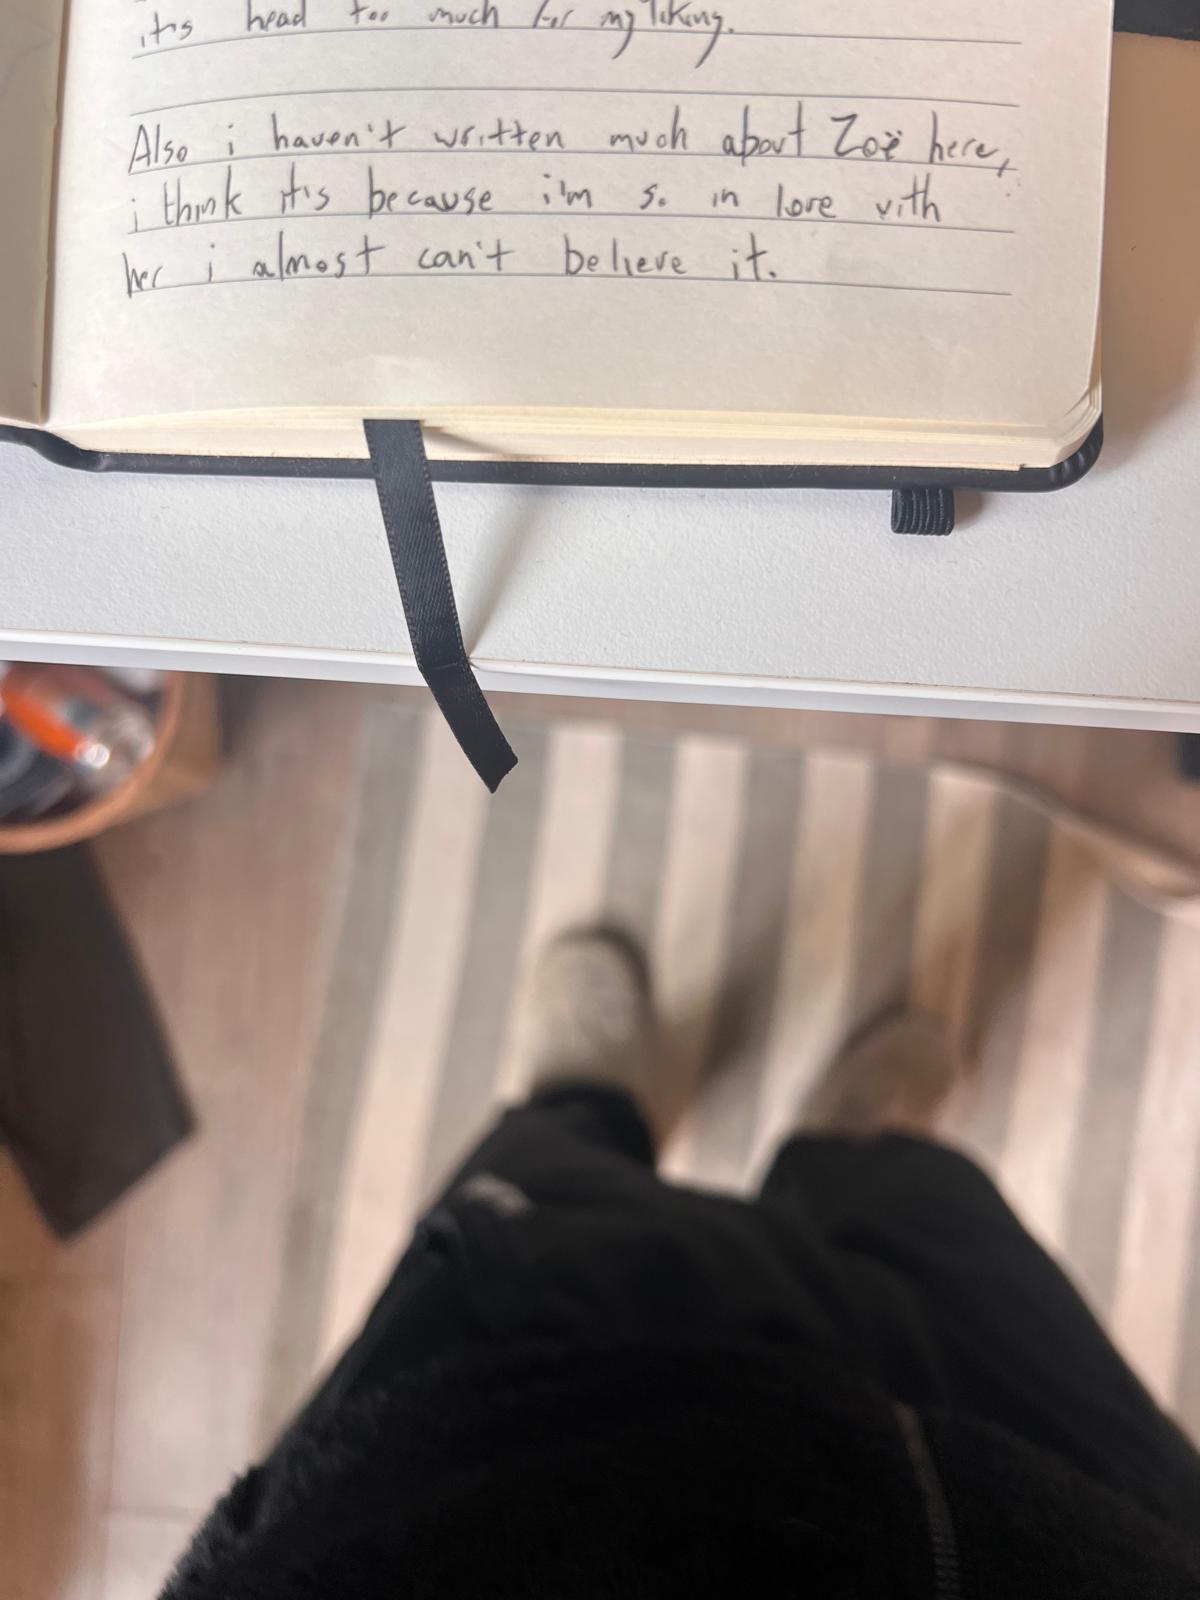 it's head too much for my liking.
Also i haven't written much about Zoë here,
i think it's because i'm so in love with
her i almost can't believe it.